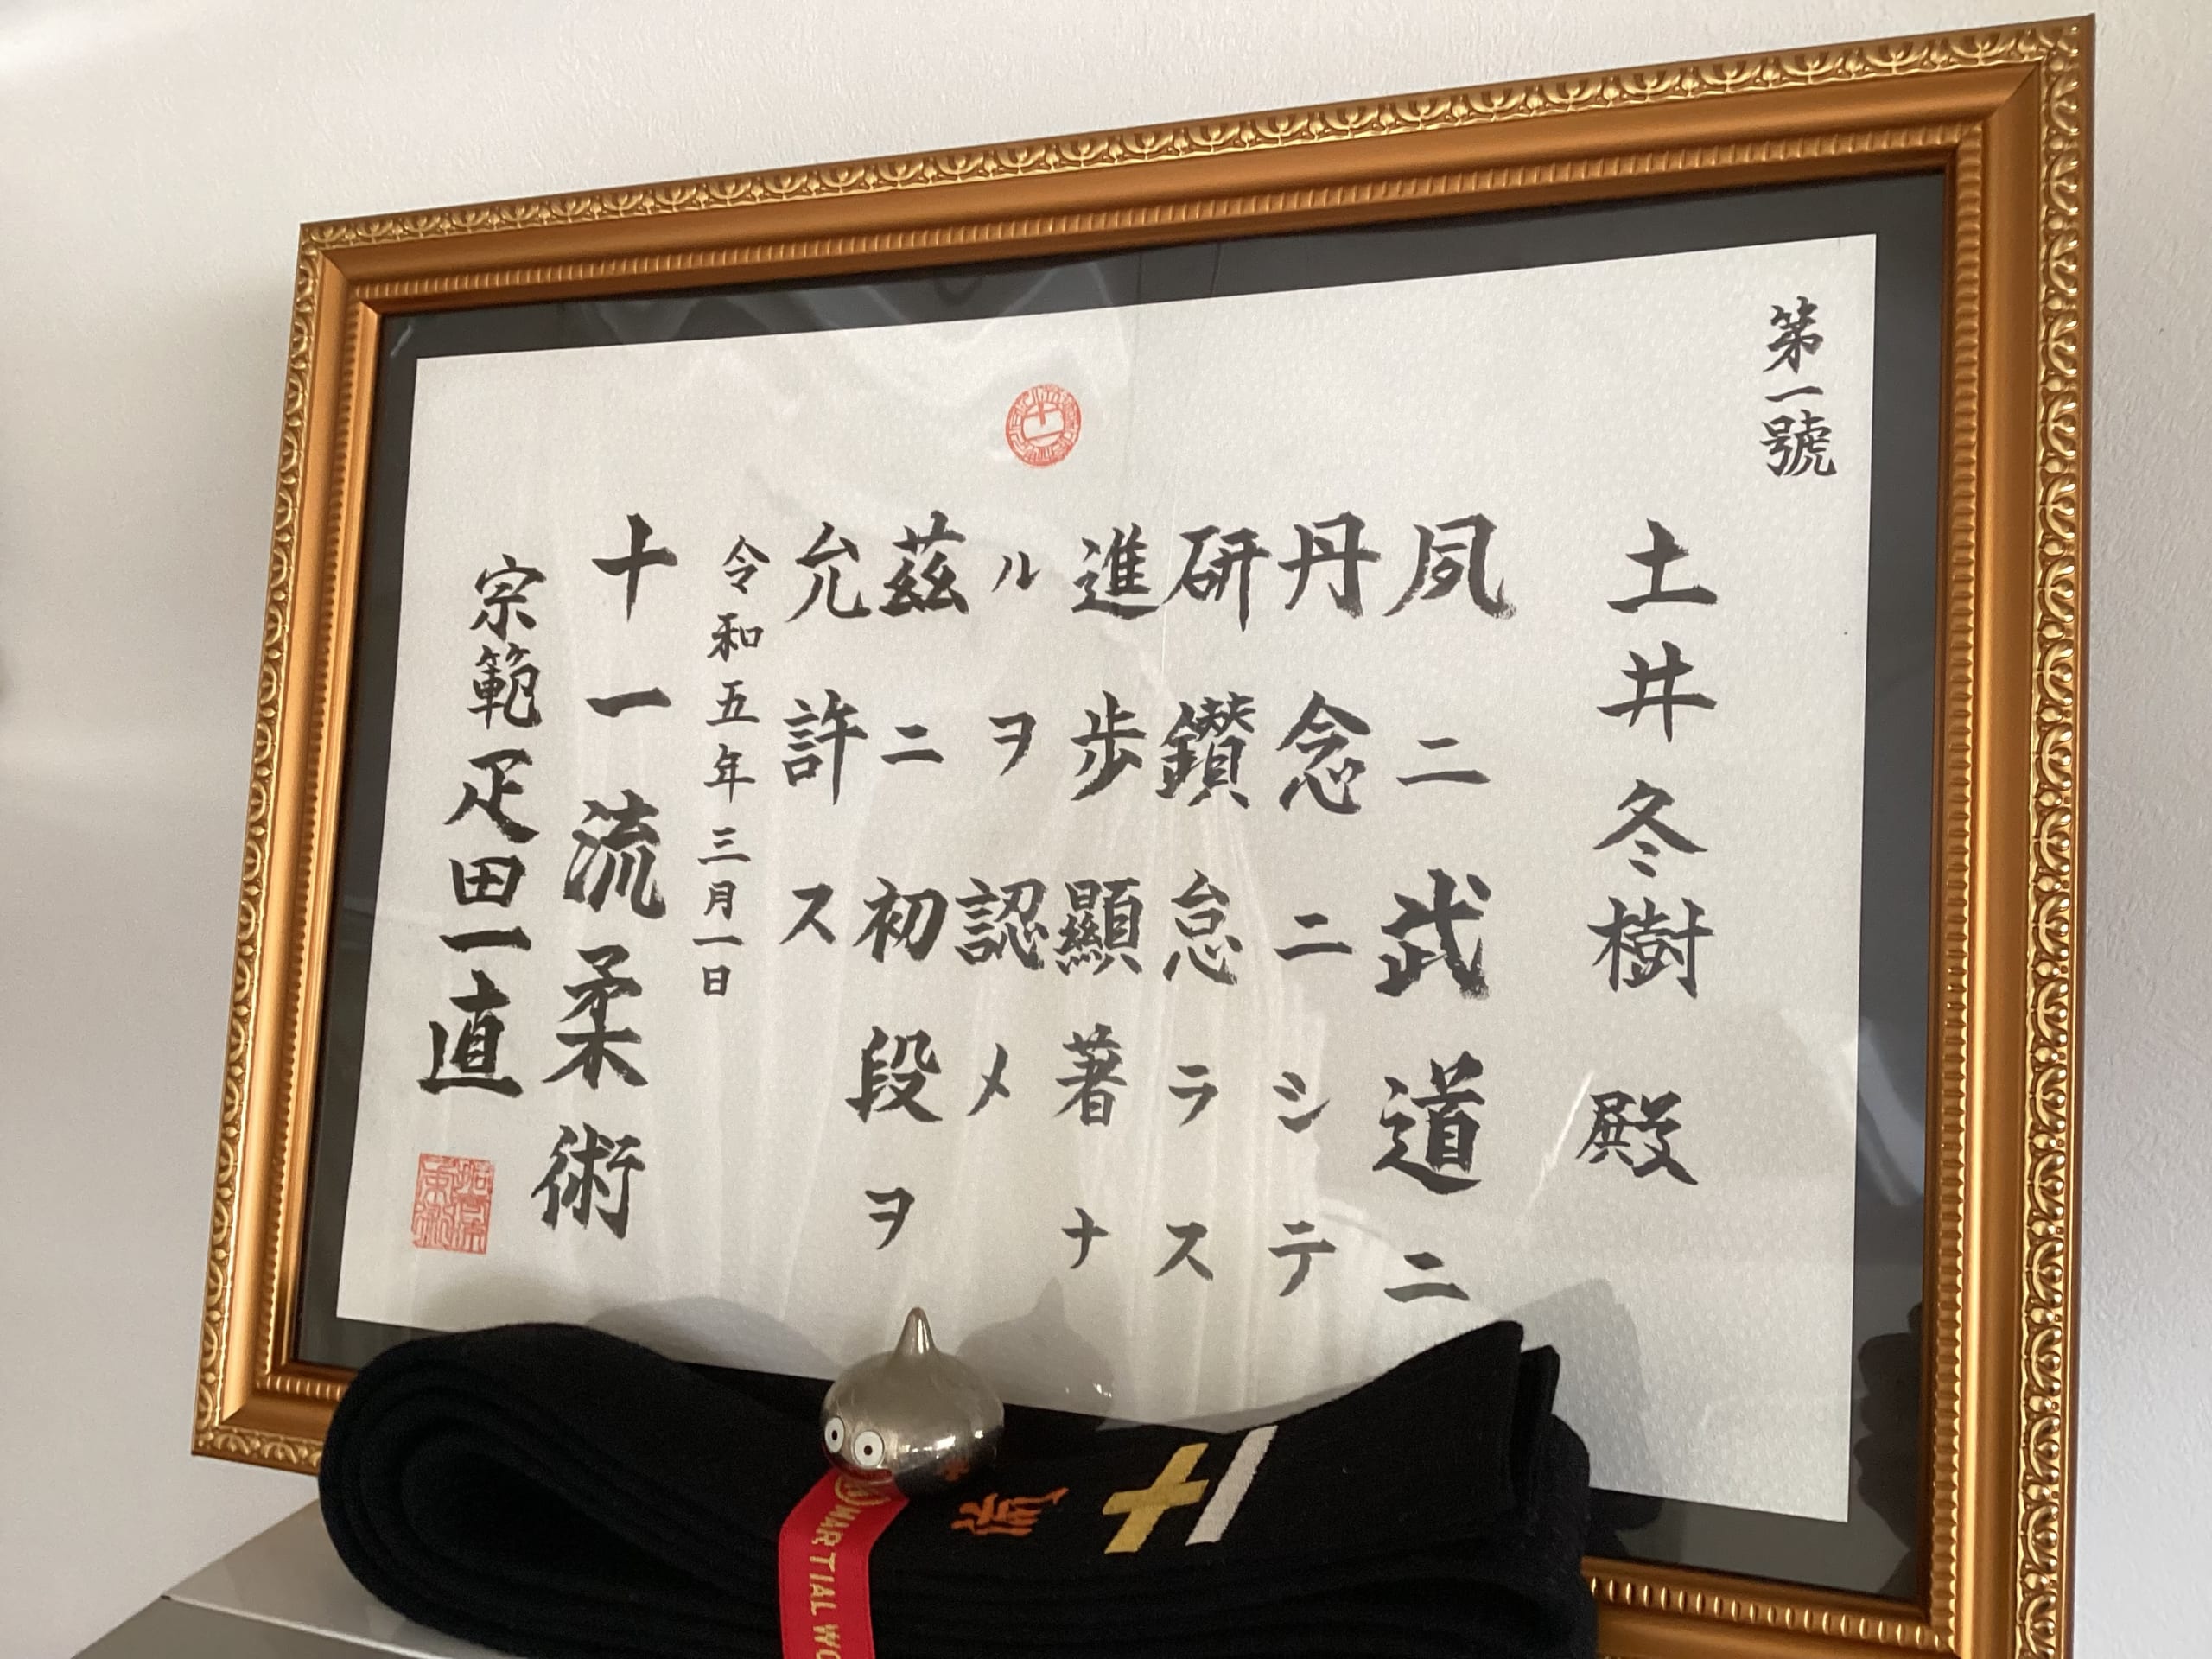 第一號
土井冬樹 殿
夙ニ武道ニ
丹念ニシテ
研鑽怠ラス
進歩顯著ナ
ルヲ認メ
茲ニ初段ヲ
允許ス
令和五年三月一日
十一流柔術
宗範疋田一直
十一
MARTIAL WO